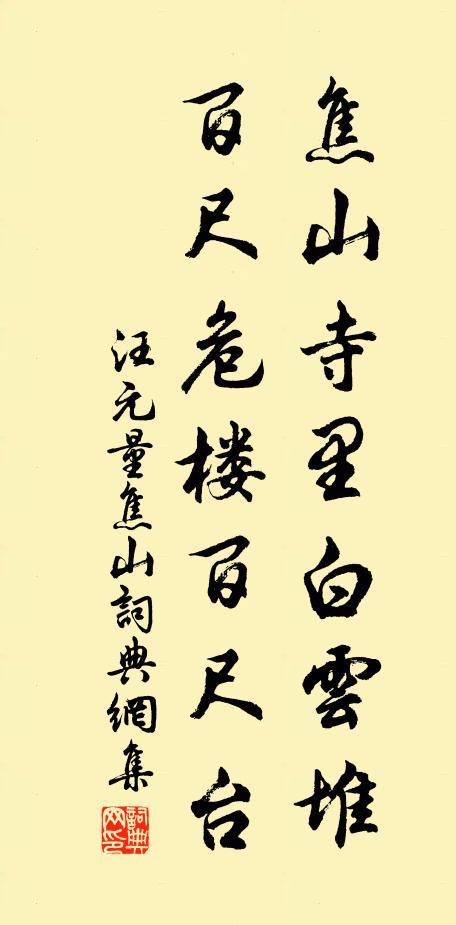 焦山寺里白雲堆
百尺危楼百尺台
汪元量焦山詞典網集
詞典網印